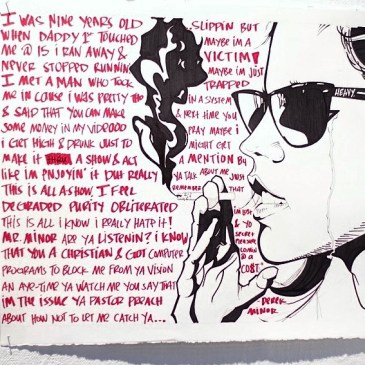 I WAS NINE YEARS OLD
WHEN DADDY 1ST TOUCHED
ME @ 15 I RAN AWAY &
NEVER STOPPED RUNNIN
I MET A MAN WHO TOOK
ME IN CAUSE I WAS PRETTY THO
& SAID THAT YOU CAN MAKE
SOME MONEY IN MY VIDEOOO
I GET HIGH & DRINK JUST TO
MAKE IT A SHOW & ACT
LIKE IM ENJOYIN' IT BUT REALLY
THIS IS ALL A SHOW, I FEEL
DEGRADED PURITY OBLITERATED
THIS IS ALL I KNOW I REALLY HATE IT!
MR. MINOR ARE YA LISTENIN? I KNOW
THAT YOU A CHRISTIAN & GOT COMPUTER
PROGRAMS TO BLOCK ME FROM YA VISION
AN AYE-TIME YA WATCH ME YOU SAY THAT
IM THE ISSUE YA PASTOR PREACH
ABOUT HOW NOT TO LET ME CATCH YA...
SLIPPIN BUT
MAYBE IM A
VICTIM!
MAYBE IM JUST
TRAPPED
IN A SYSTEM
& NEXT TIME YOU
PRAY MAYBE I
MIGHT GET
A MENTION BY
YA TALK ABOUT ME JUST
REMEMBER THAT
IM JUST
& YO
SECRET
PLEASURE
COMIN @
A
COST
-DEREK
MINOR
HEAVY